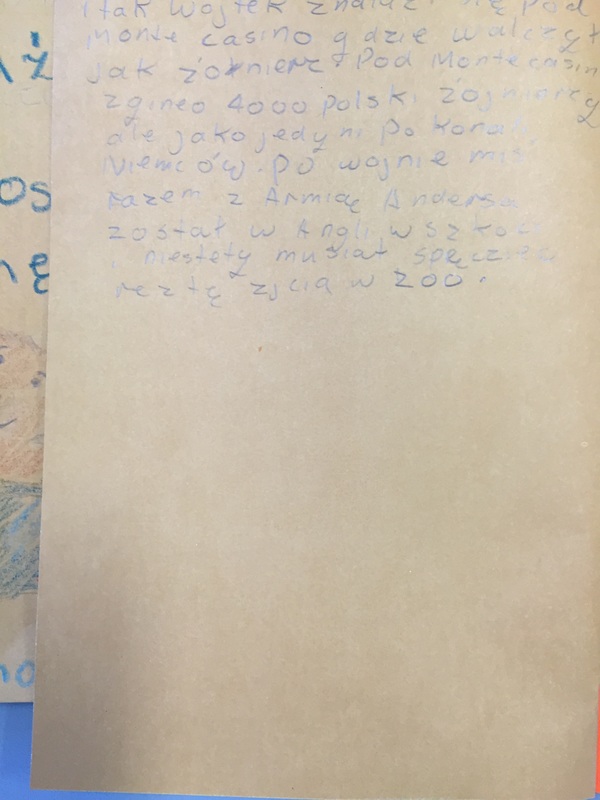 i tak wojtek znalazł się pod
monte casino gdzie walczył
jak żołnierz. Pod Montecasin
zgineo 4000 polski żojnierzy
ale jako jedyni pokonali
Niemców. Po wojnie miś
razem z Armią Andersa
został w Angli w szkoc
i niestety musiał spędzić
resztę zjcia w zoo.
os
nę
no